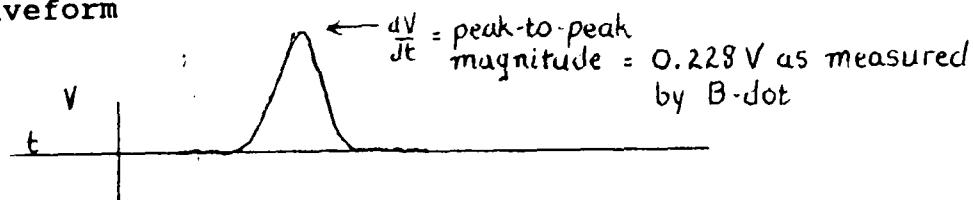 veform
dV/dt = peak-to-peak
magnitude = 0.228 V as measured
by B-dot
V
t